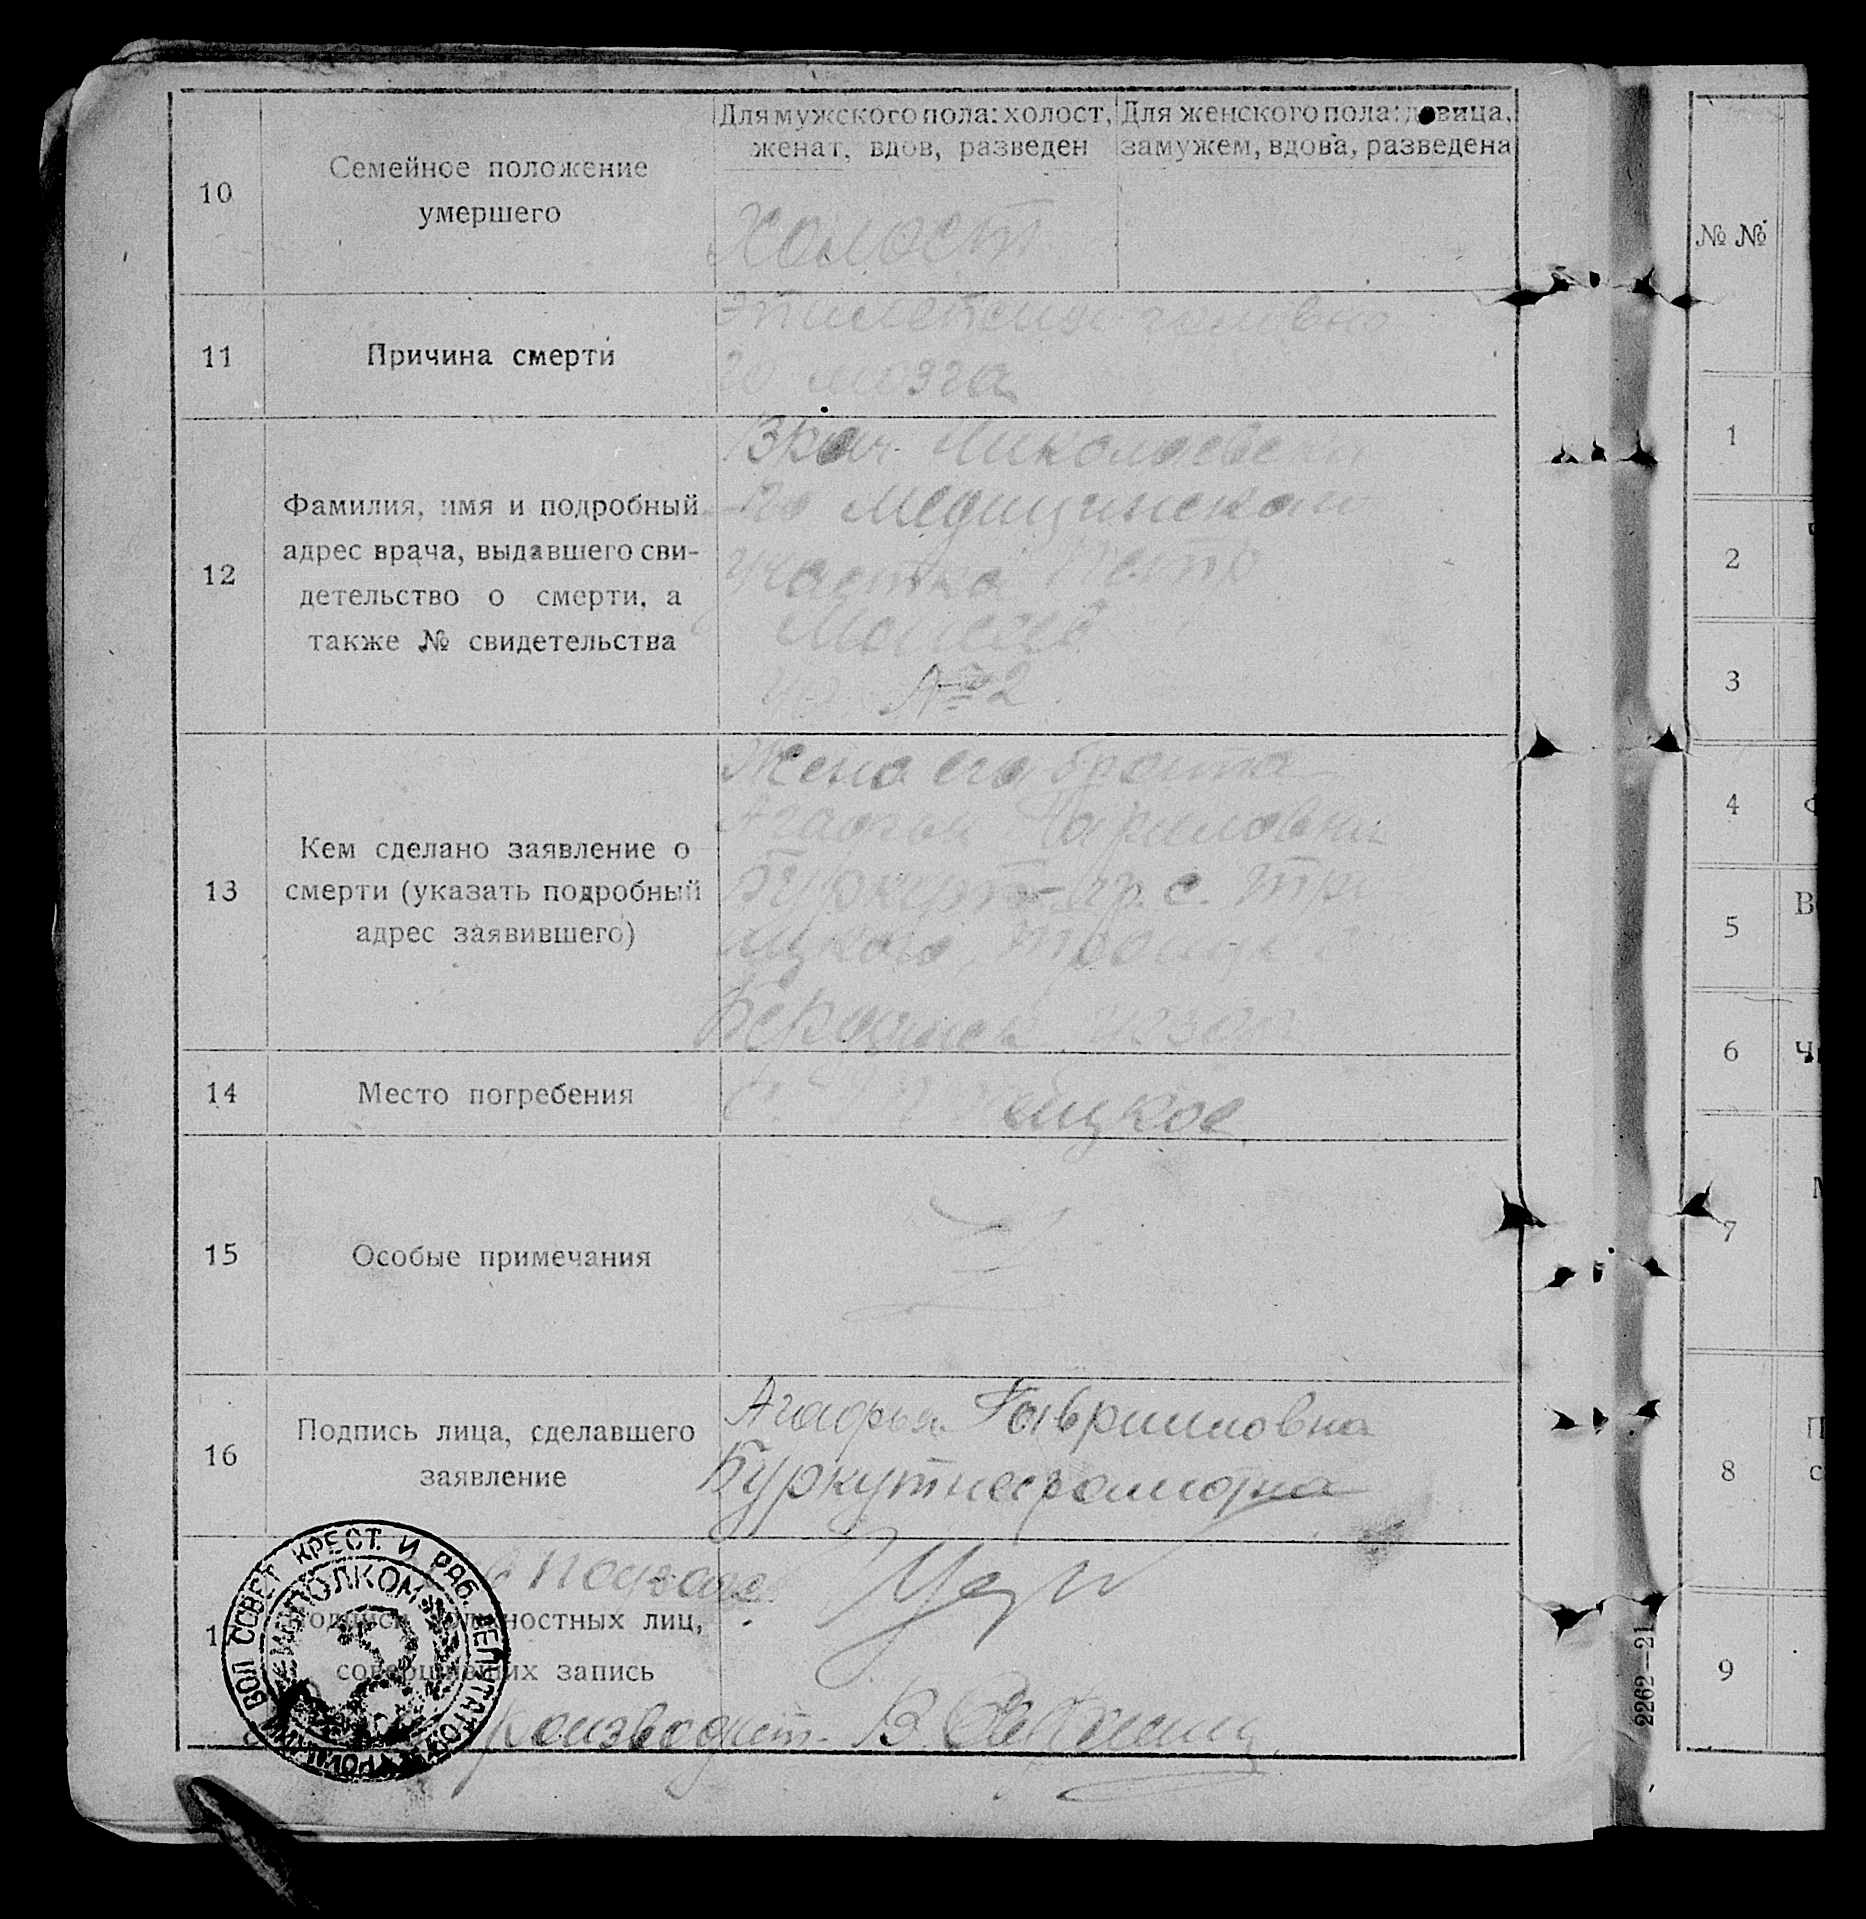 10
Семейное положение
умершего
Для мужского пола: холост,
женат, вдов, разведен
Для женского пола: девица,
замужем, вдова, разведена
Холост
11
Причина смерти
Эпилепсия головно
го мозга
12
Фамилия, имя и подробный
адрес врача, выдавшего сви-
детельство о смерти, а
также № свидетельства
Врач Николаевско
го Медицинскаго
участка Петр
№ 2
13
Кем сделано заявление о
смерти (указать подробный
адрес заявившего)
Жена его брата
Агафья Гавриловна
Буркут гр. с. Тро
ицкого, Троицк
Бердянск уезда
14
Место погребения
с. Троицкое
15
Особые примечания
16
Подпись лица, сделавшего
заявление
Агафья Гавриловна
Буркут неграмотна
Подписи должностных лиц,
совершивших запись
производит. В.
ВОЛ СОВЕТ КРЕСТ. И РАБ. ДЕПУТАТОВ
ИСПОЛКОМ
2262—21
№ №
1
2
3
4
5
6
7
8
9